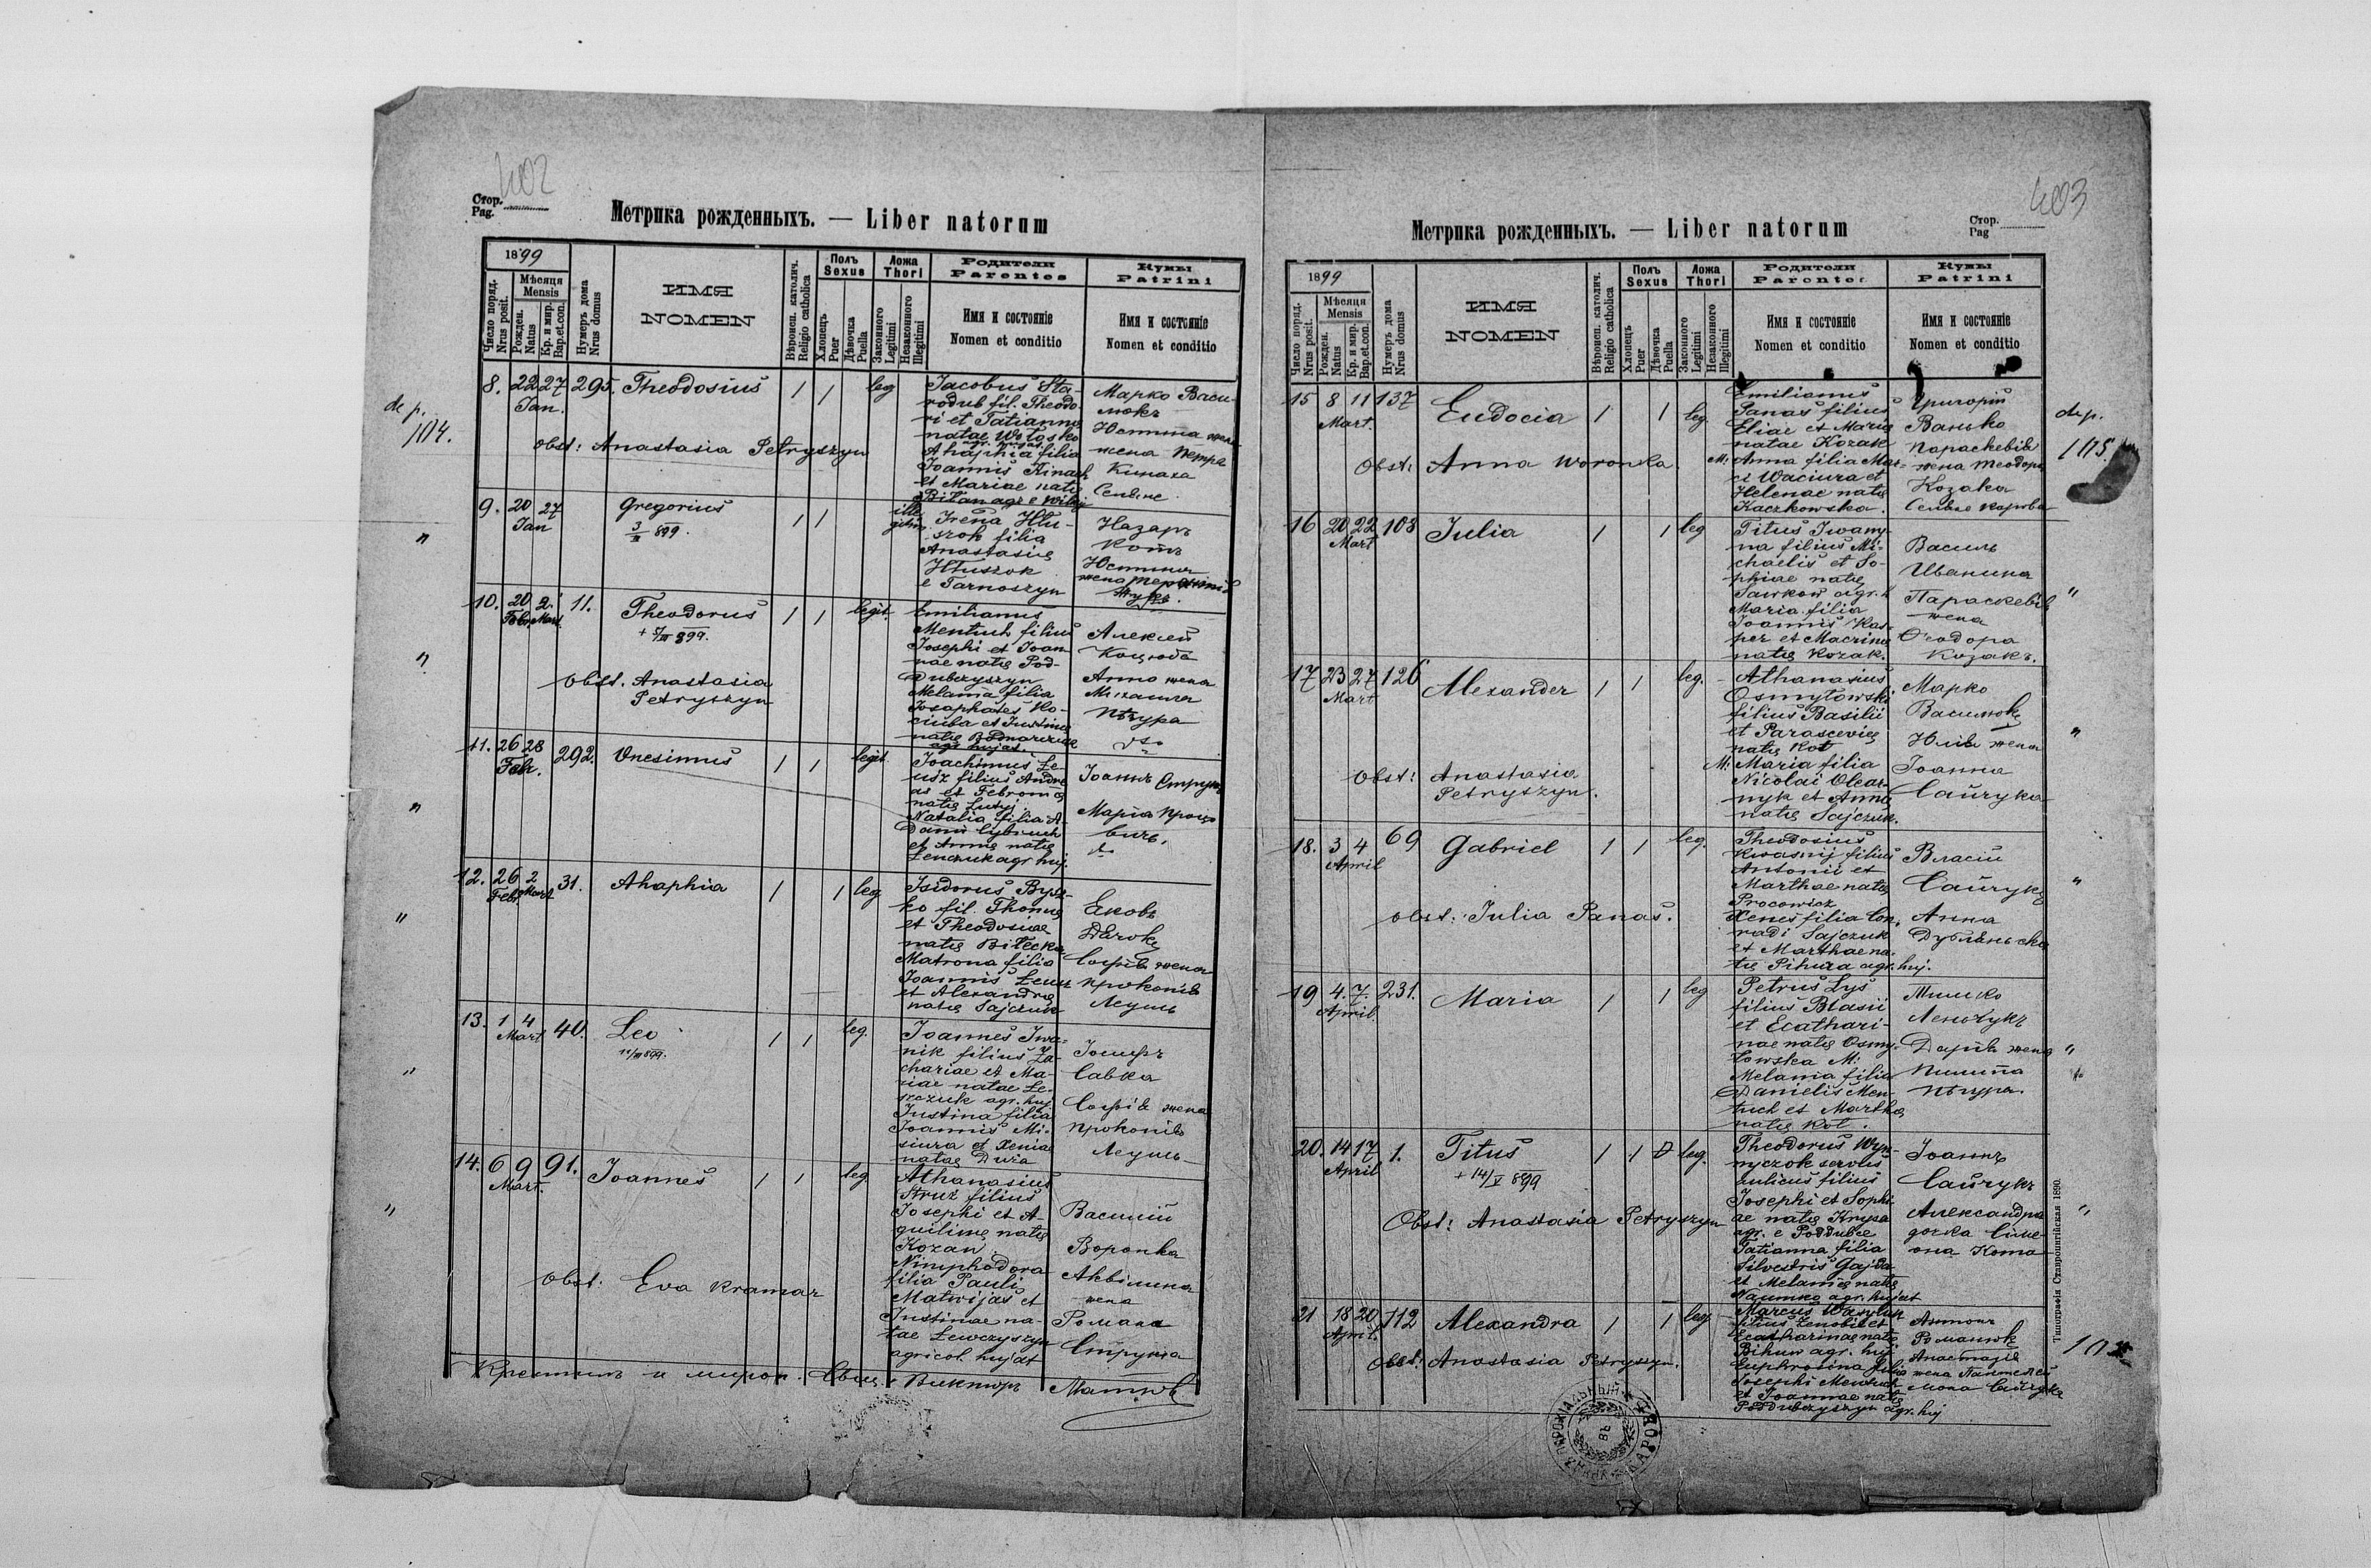 402
Стор.
Pag.
Метрика рожденныхъ. — Liber natorum
1899
Число поряд.
Nrus posit.
Мѣсяця
Mensis
Рожден.
Natus
Кр. и мир.
Bap.et.con.
Нумеръ дома
Nrus domus
ИМЯ
NOMEN
Вѣроисп. католич.
Religio catholica
Полъ
Sexus
Хлопецъ
Puer
Дѣвочка
Puella
Ложа
Thori
Законного
Legitimi
Незаконного
Illegitimi
Родители
Parentes
Имя и состояніе
Nomen et conditio
Кумы
Patrini
Имя и состояніе
Nomen et conditio
de p.
104.
8. 22 27 295. Theodosius 1 1 leg
Jan.
obst: Anastasia Petryszyn
Jacobus Sta-
rodub fil. Theodo-
ri et Tatianna
natae Wołosko
Ahaphia filia
Joannis Kinach
et Mariae natę
Biłan agr e
Марко Васи-
люкъ
Юстина
жена Петра
Кинаха
9. 20 27 Gregorius 1 1 ille
Jan
899.
gitim
Irena Hłu-
szok filia
Anastasię
Hłuszok
e Tarnoszyn
Назаръ
Котъ
Юстина
жена
"
10. 20 2 11. Theodorus 1 1 legit.
Febr. Mart
+ 899.
obst. Anastasia
Petryszyn
Emilianus
Mentuch filius
Josephi et Joan-
nae natę Pod-
dubczyszyn
Melania filia
Josaphates Ko-
ciuba et Justinę
natę
agr hujat.
Алексей
Коцюба
Анна жена
Михаила
Пѣтура
"
11. 26 28 292. Onesimus 1 1 legit
Febr.
Joachimus Le-
usz filius Andre
as et Febronię
natę
Natalia filia A-
dami
et Annę natę
Lenczuk agr huj.
Іоаннъ
Марія
"
12. 26 2 31. Ahaphia 1 1 leg
Febr. Mart
Isidorus
ko fil. Thomę
et Theodosiae
natę Biłecka
Matrona filia
Joannis
et Alexandrę
natę Sajczuk
Яковъ
Софія жена
Прокопія
"
13. 1 4 40. Leo 1 1 leg.
Mart
11/III 899.
Joannes Iwa-
nik filius Za-
chariae et Ma-
riae natae Le-
szczuk agr. huj
Justina filia
Joannis Mi-
siura et Xeniae
natae
Савка
Софія жена
Прокопія
"
14. 6 9 91. Joannes 1 1 leg
Mart.
obst: Eva Kramar
Athanasius
Struz filius
Josephi et A-
quilinę natę
Kozan
Nimphodora
filia Pauli
Matwijas et
Justinae na-
tae Lewczyszyn
agricol. hujat
Василій
Воронка
Аквилина
жена
Романа
"
Крестилъ и миров. Свящ. Викторъ
403
Стор.
Pag
Метрика рожденныхъ. — Liber natorum
1899
Число поряд.
Nrus posit.
Мѣсяця
Mensis
Рожден.
Natus
Кр. и мир.
Bap.et.con.
Нумеръ дома
Nrus domus
ИМЯ
NOMEN
Вѣроисп. католич.
Religio catholica
Полъ
Sexus
Хлопецъ
Puer
Дѣвочка
Puella
Ложа
Thori
Законного
Legitimi
Незаконного
Illegitimi
Родители
Parentes
Имя и состояніе
Nomen et conditio
Кумы
Patrini
Имя и состояніе
Nomen et conditio
15 8 11 137 Eudocia 1 1 leg
Mart.
Obst: Anna Woronka.
Emilianus
Panas filius
Eliae et Marię
natae Kozak
M: Anna filia Mar-
ci Waciura et
Helenae natę
Kaczkowska.
Григорій
Ванько
Параскевія
жена Теодора
Козака
de p.
105.
16 20 22 108 Julia 1 1 leg
Mart
Titus Iwany-
na filius Mi-
chaelis et So-
phiae natę
Sawkow agr. h
Maria filia
Joannis Kas-
per et Macrinę
natę Kozak.
Василь
Иванина
Параскевія
жена
Ѳеодора
Козакъ.
"
17 23 27 126 Alexander 1 1 leg.
Mart
Obst: Anastasia
Petryszyn.
Athanasius
Osmyłowski
filius Basilii
et Parascevię
natę Kot
M: Maria filia
Nicolai Olear-
nyk et Annę
natę Sajczuk.
Марко
Василюкъ
Юлія жена
Іоанна
Сайчука
"
18. 3 4 69 Gabriel 1 1 leg.
April
obst: Julia Panas.
Theodosius
Kwasnij filius
Antonii et
Marthae natę
Procowicz
Xenes filia Con-
radi Sajczuk
et Marthae na-
tę Pihura agr. huj.
Власій
Сайчукъ
Анна
"
19 4. 7. 231. Maria 1 1 leg
April.
Petrus Lys
filius Błasii
et Ecathari-
nae natę Osmy-
łowska M:
Melania filia
Danielis Men-
tuch et Marthę
natę Kot.
Тимко
Ленчукъ
Дарія жена
Пилипа
Пѣтура.
"
20. 14 17 1. Titus 1 1 leg.
April
+ 14/V 899
Obst: Anastasia Petryszyn
Theodorus Wyn-
nyczok servus
aulicus filius
Josephi et Sophi-
ae natę Krypa
agr. e Poddubce
Tatianna filia
Silvestris Gajda
et Melanię natę
Naumko agr. hujat
Іоаннъ
Сайчукъ
Александра
дочка Симе-
она Кота
"
21 18 20 112 Alexandra 1 1 leg.
April.
Obst: Anastasia Petryszyn.
Marcus Wasyluk
filius Zenobii et
Ecatharinae natę
Bihun agr. huj
Euphrosina filia
Josephi Mentuch
et Joannae natę
Poddubczyszyn agr. huj
Антонъ
Романюкъ
Анастазія
жена Пантелей
мона Сайчука
Типографія Ставропигійская 1890.